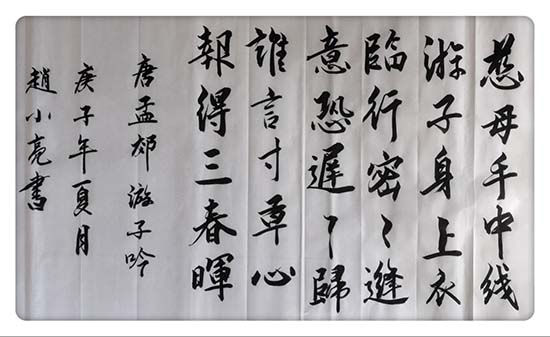 慈母手中线
游子身上衣
臨行密〻縫
意恐遲〻歸
誰言寸草心
報得三春暉
唐孟郊游子吟
庚子年夏月
趙小亮書